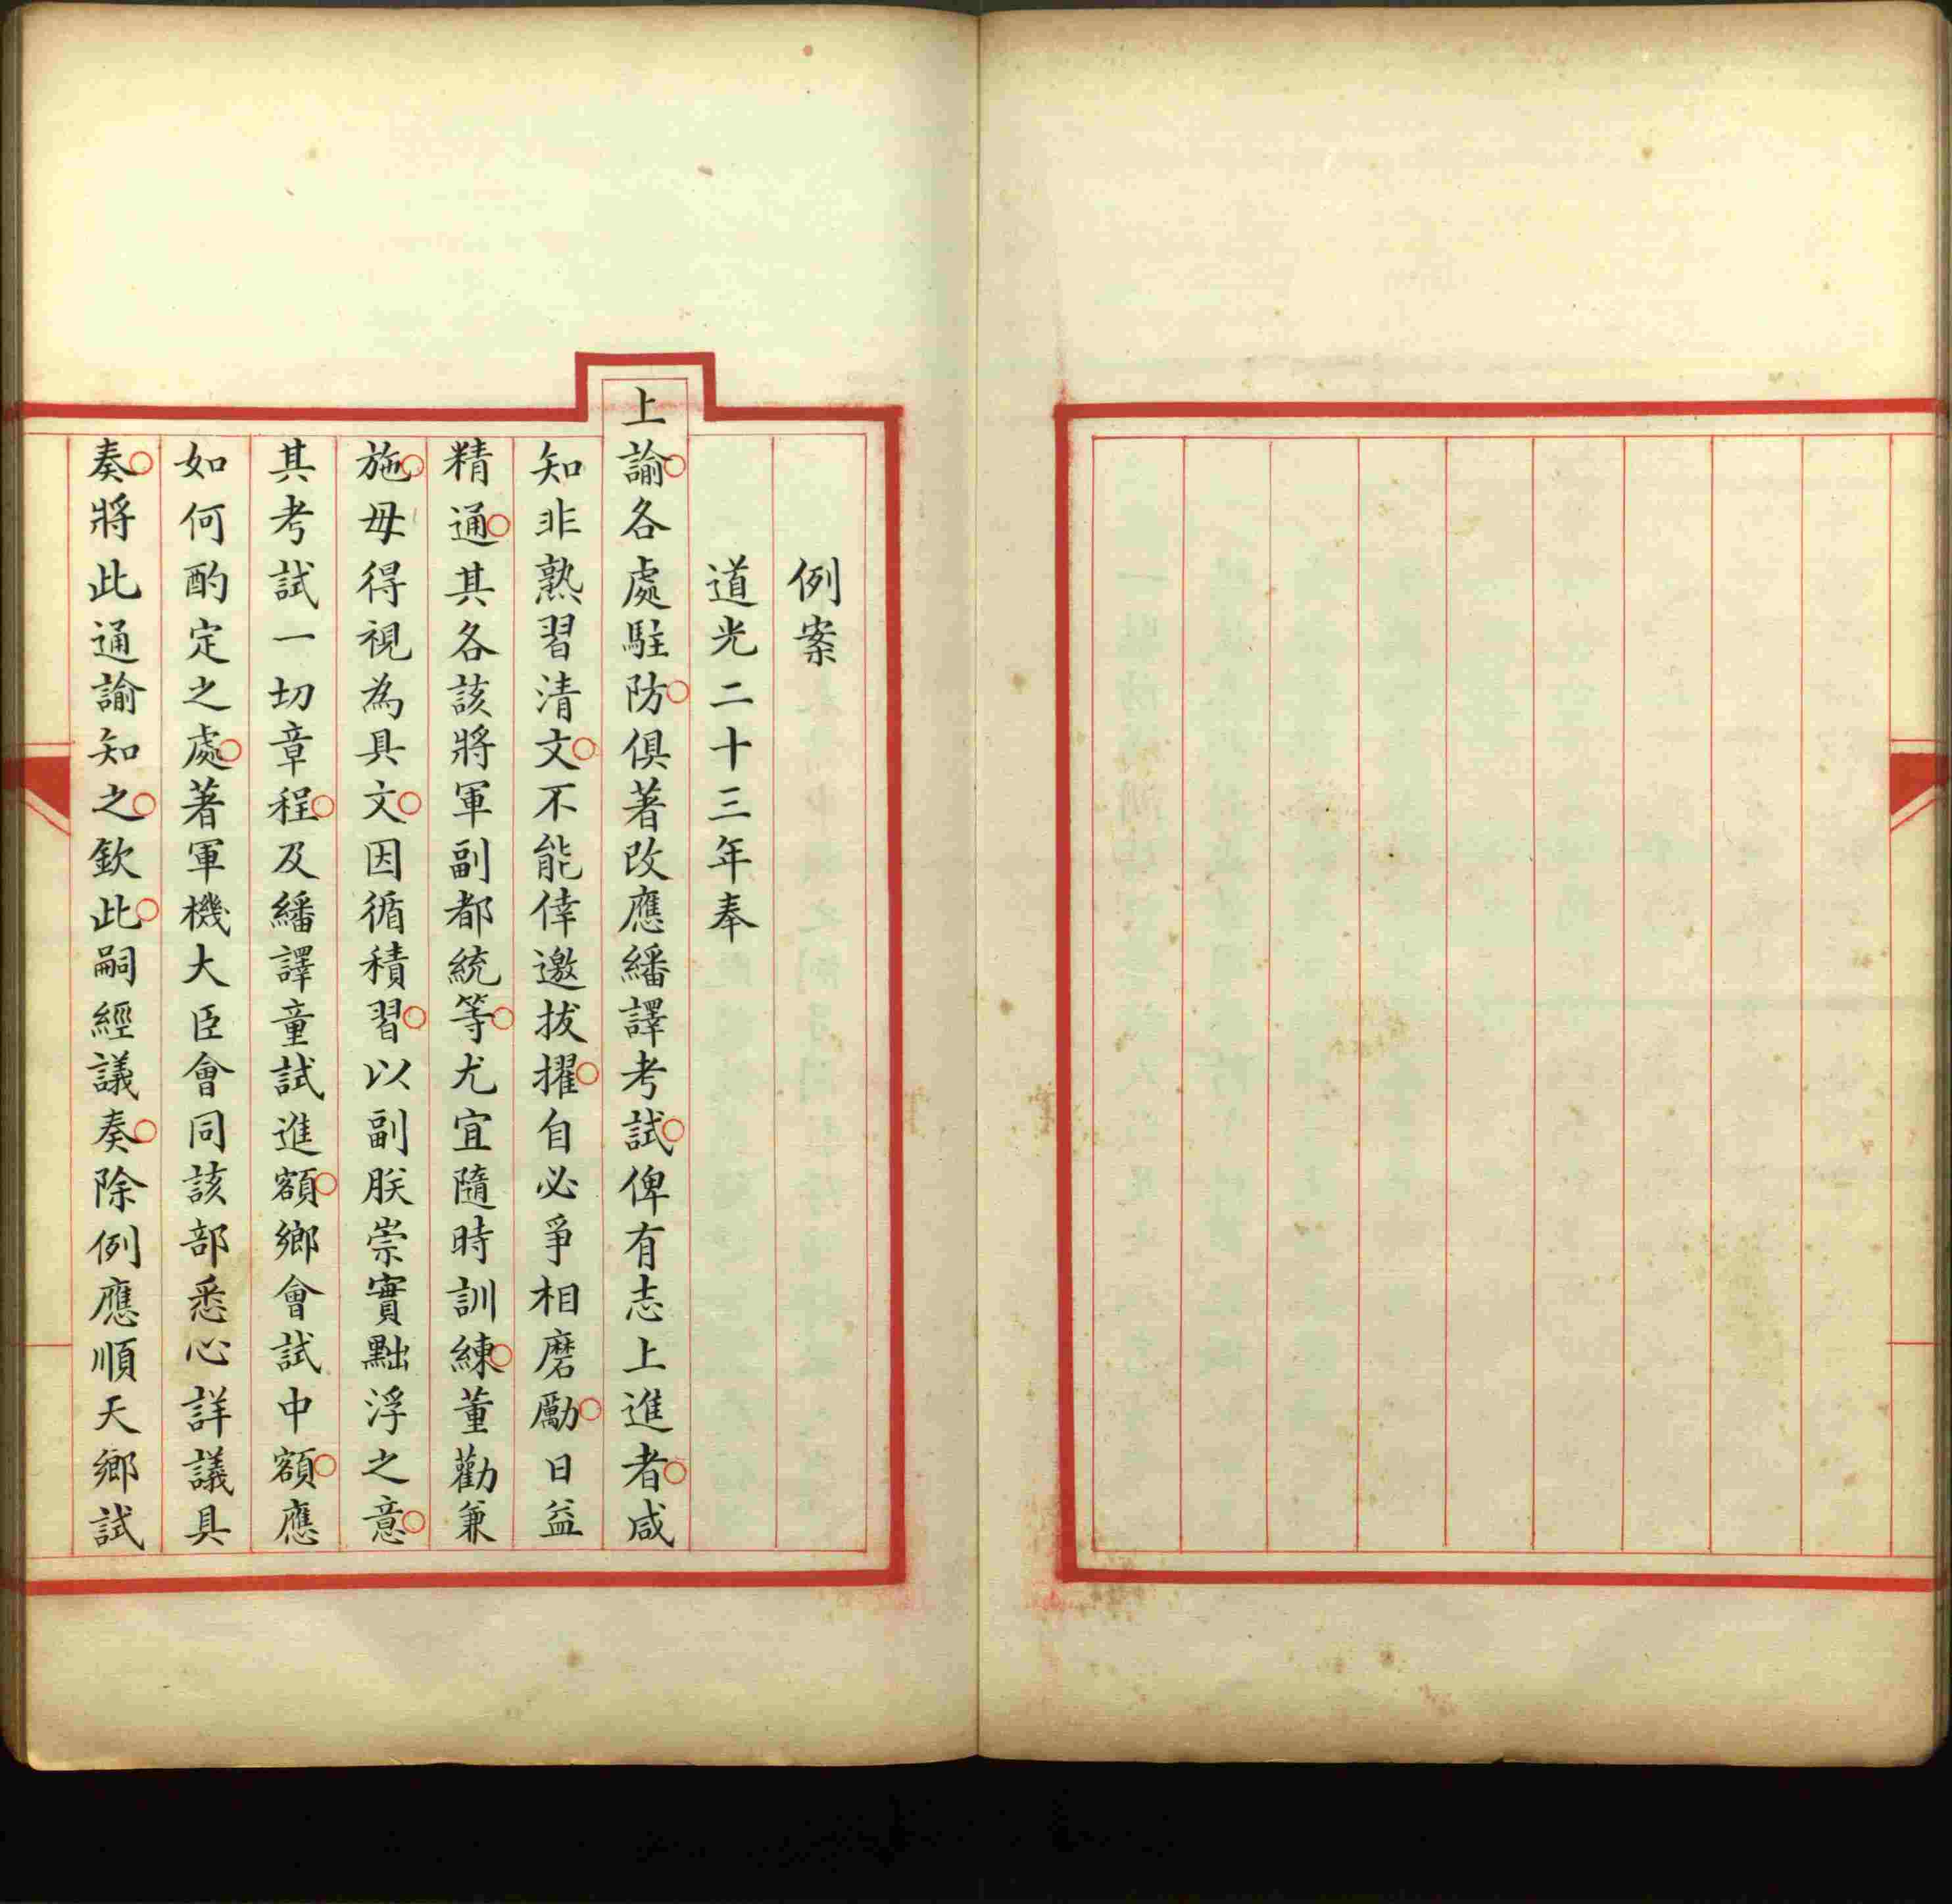 例案
道光二十三年奉
上諭各處駐防俱著改應繙譯考試俾有志上進者咸
知非熟習清文不能倖邀拔擢自必爭相磨勵日益
精通其各該將軍副都統等尤宜隨時訓練董勸兼
施毋得視為具文因循積習以副朕崇實黜浮之意
其考試一切章程及繙譯童試進額鄉會試中額應
如何酌定之處著軍機大臣會同該部悉心詳議具
奏將此通諭知之欽此嗣經議奏除例應順天鄉試